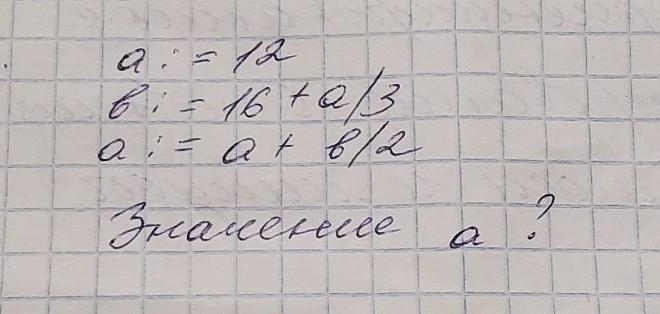 a := 12
в := 16 + a/3
a := a + в/2
Значение a ?